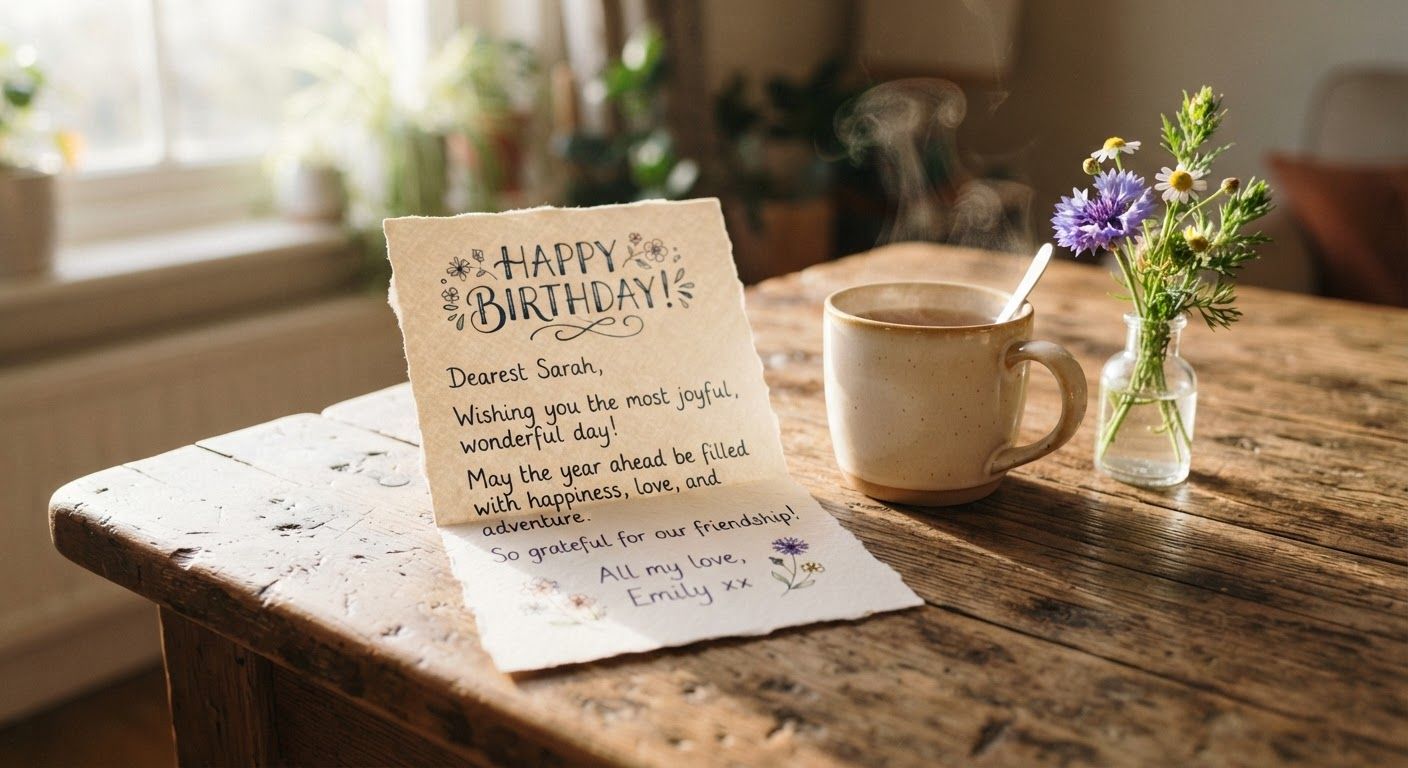 HAPPY
BIRTHDAY!
Dearest Sarah,
Wishing you the most joyful,
wonderful day!
May the year ahead be filled
with happiness, love, and
adventure.
So grateful for our friendship!
All my love,
Emily xx